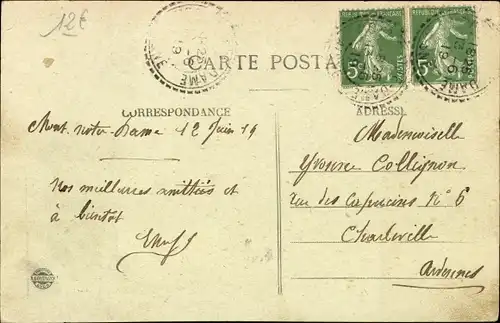 12€
CARTE POSTA
CORRESPONDANCE
ADRESSE
Mont notre Dame 12 Juin 19
Nos meilleures amitiés et
à bientôt
Mademoiselle
Yvonne Collignon
rue des Capucines N° 6
Charleville
Ardennes
RÉPUBLIQUE FRANÇAISE
5c
POSTES
RÉPUBLIQUE FRANÇAISE
5c
POSTES
DAME